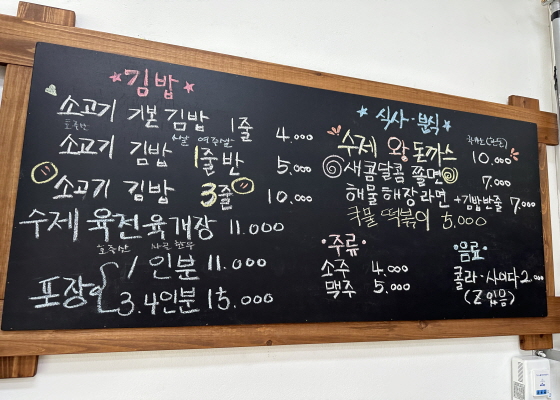 김밥
소고기 기본 김밥 1줄 4.000
호주산 쌀 여주쌀
소고기 김밥 1줄반 5.000
소고기 김밥 3줄 10.000
수제 육전육개장 11.000
호주산 사골 한우
포장 1인분 11.000
3.4인분 15.000
식사·분식
수제 왕돈까스 10.000
새콤달콤 쫄면 7.000
해물해장라면 +김밥반줄 7.000
국물떡볶이 5.000
·주류·
소주 4.000
맥주 5.000
·음료·
콜라·사이다 2.000
(Z있음)